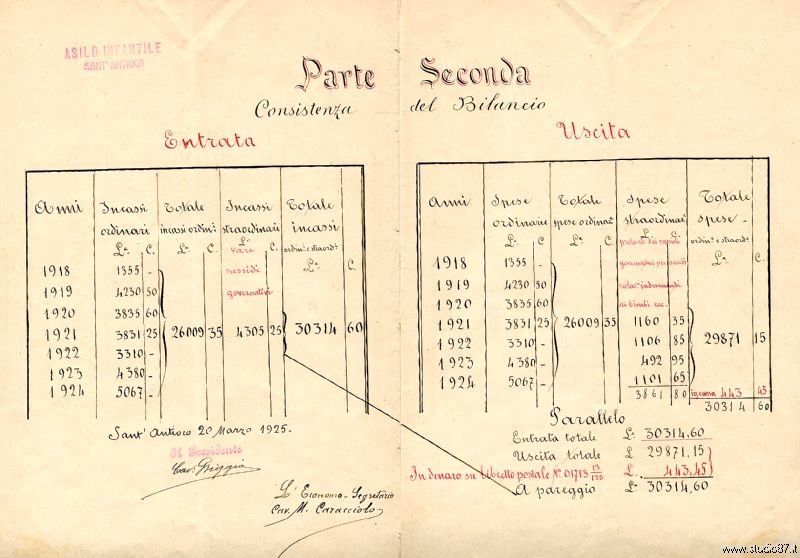 ASILO INFANTILE
SANT'ANTIOCO
Parte Seconda
Consistenza del Bilancio
Entrata
Anni Incassi ordinari Totale incassi ordin.i Incassi straordinari Totale incassi ordin.i e straord.i
L. C. L. C. L. C. L. C.
vari sussidi governativi
1918 1355 -
1919 4230 50
1920 3835 60
1921 3831 25 26009 35 4305 25 30314 60
1922 3310 -
1923 4380 -
1924 5067 -
Sant'Antioco 20 Marzo 1925.
Il Presidente
Cav.
L'Economo-Segretario
Cav. M. Caracciolo
Uscita
Anni Spese ordinarie Totale spese ordinar.e Spese straordinar.e Totale spese ordin.e e straord.e
L. C. L. C. L. C. L. C.
governativi
indumenti
ai bimbi ecc.
1918 1355 -
1919 4230 50
1920 3835 60
1921 3831 25 26009 35 1160 35
1922 3310 - 1106 85 29871 15
1923 4380 - 492 95
1924 5067 - 1101 65
3861 80 in cassa 443 45
30314 60
Parallelo
Entrata totale L. 30314,60
Uscita totale L. 29871,15
In denaro su libretto postale N. 01713 13/120 L. 443,45
A pareggio L. 30314,60
www.studio87.it